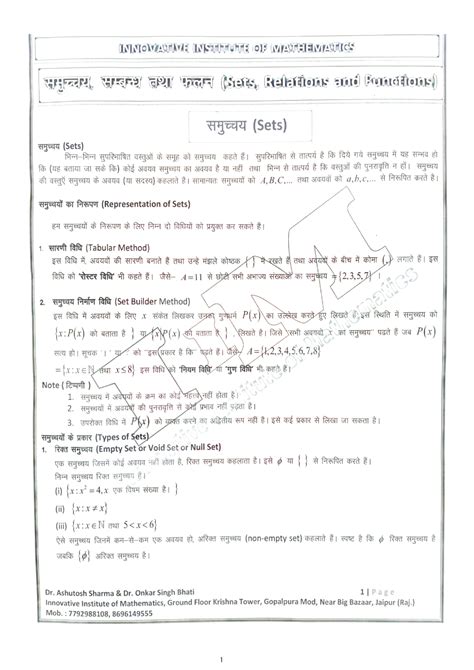 INNOVATIVE INSTITUTE OF MATHEMATICS
समुच्चय, सम्बन्ध तथा फलन (Sets, Relations and Functions)
समुच्चय (Sets)
समुच्चय (Sets)
भिन्न–भिन्न सुपरिभाषित वस्तुओं के समूह को समुच्चय कहते हैं। सुपरिभाषित से तात्पर्य है कि दिये गये समुच्चय में यह सम्भव हो
कि (यह बताया जा सके कि) कोई अवयव समुच्चय का अवयव है या नहीं तथा भिन्न से तात्पर्य है कि वस्तुओं की पुनरावृति न हों। समुच्चय
की वस्तुएँ समुच्चय के अवयव (या सदस्य) कहलाते है। सामान्यतः समुच्चयों को A,B,C,... तथा अवयवों को a,b,c,... से निरूपित करते है।
समुच्चयों का निरूपण (Representation of Sets)
हम समुच्चयों के निरूपण के लिए निम्न दो विधियों को प्रयुक्त कर सकते हैं।
1. सारणी विधि (Tabular Method)
इस विधि में अवयवों की सारणी बनाते है तथा उन्हे मंझले कोष्ठक { } में रखते है तथा अवयवों के बीच में कोमा (,) लगाते हैं। इस
विधि को 'रोस्टर विधि' भी कहते हैं। जैसे– A = 11 से छोटी सभी अभाज्य संख्याओं का समुच्चय = {2,3,5,7}.
2. समुच्चय निर्माण विधि (Set Builder Method)
इस विधि में अवयवों के लिए x संकेत लिखकर उनका गुणधर्म P(x) का उल्लेख करते हुए लिखते हैं इस स्थिति में समुच्चय को
{x:P(x) को बताता है } या {x|P(x) को बताता है }, लिखते है। जिसे "सभी अवयवों x का समुच्चय" पढते हैं जब P(x)
सत्य हो। सूचक ' | ' या ' : ' को "इस प्रकार है कि" पढते है। जैसे– A={1,2,3,4,5,6,7,8}
={x:x∈ℕ तथा x≤8} इस विधि को 'नियम विधि' या 'गुण विधि' भी कहते हैं।
Note ( टिप्पणी )
1. समुच्चय में अवयवों के क्रम का कोई महत्व नहीं होता है।
2. समुच्चय में अवयवों की पुनरावृति से कोई प्रभाव नहीं पड़ता।
3. उपरोक्त विधि में P(x) को व्यक्त करने का अद्वितीय रूप नहीं है। इसे कई प्रकार से लिखा जा सकता है।
समुच्चयों के प्रकार (Types of Sets)
1. रिक्त समुच्चय (Empty Set or Void Set or Null Set)
एक समुच्चय जिसमें कोई अवयव नहीं होता है, रिक्त समुच्चय कहलाता है। इसे ϕ या { } से निरूपित करते है।
निम्न समुच्चय रिक्त समुच्चय है।
(i) {x:x²=4,x एक विषम संख्या है। }
(ii) {x:x≠x}
(iii) {x:x∈ℕ तथा 5<x<6}
ऐसे समुच्चय जिनमें कम–से–कम एक अवयव हो, अरिक्त समुच्चय (non-empty set) कहलाते हैं। स्पष्ट है कि ϕ रिक्त समुच्चय है
जबकि {ϕ} अरिक्त समुच्चय है।
Dr. Ashutosh Sharma & Dr. Onkar Singh Bhati 1 | P a g e
Innovative Institute of Mathematics, Ground Floor Krishna Tower, Gopalpura Mod, Near Big Bazaar, Jaipur (Raj.)
Mob. : 7792988108, 8696149555
1